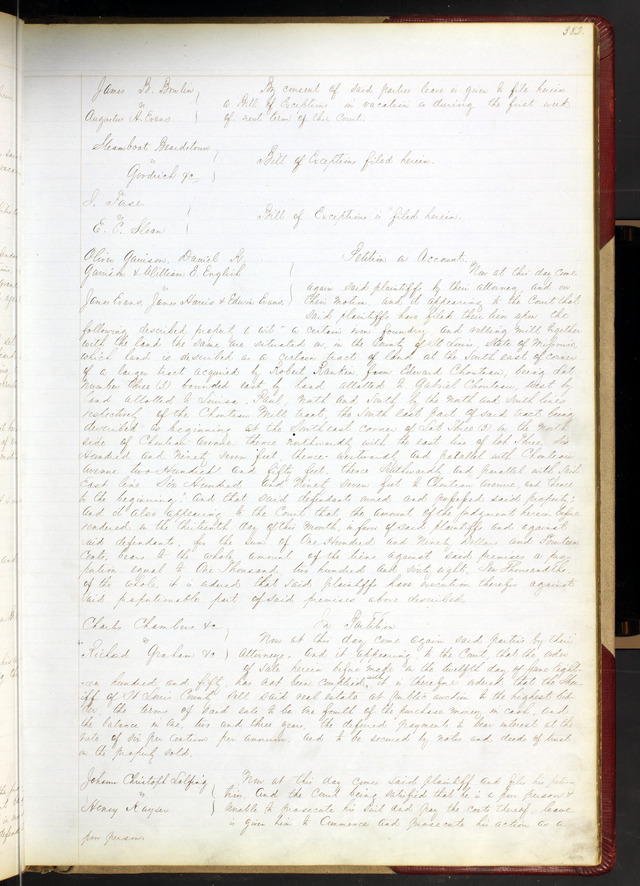 382.
James B. Bowlin } By consent of said parties leave is given to file herein
vs a Bill of Exceptions in vacation or during the first week
Augustus H. Evans of next term of this Court.
Steamboat Beardstown
vs Bill of Exceptions filed herein.
Goodrich &c
J. Fase
vs Bill of Exceptions is filed herein.
E. C. Sloan
Oliver Garrison, Daniel R. Petition on Account.
Garrison & William E. English Now at this day come
vs again said plaintiffs by their attorney, and on
James Evans, James Harris & Edwin Evans, their motion and it appearing to the Court that
said plaintiffs have filed their lien upon the
following described property, to wit: a certain iron foundry and rolling mill together
with the land the same are situated on, in the County of St Louis, State of Missouri,
which land is described as a certain tract of land at the South east corner
of a larger tract acquired by Robert Rankin from Edward Chouteau, being Lot
Number three (3) bounded East by land allotted to Gabriel Chouteau, West by
land allotted to Louisa Paul, North and South by the North and South lines
respectively of the Chouteau Mill tract, the South east part of said tract being
described as beginning at the Southeast corner of Lot three (3) on the North
side of Chouteau Avenue thence northwardly with the east line of lot three, Six
Hundred and Ninety Seven feet, thence westwardly and parallel with Chouteau
Avenue two Hundred and fifty feet, thence Southwardly and parallel with said
East line Six Hundred and Ninety Seven feet to Chouteau Avenue, and thence
to the beginning. And that said defendants owned and possessed said property;
And it also appearing to the Court that the amount of the judgment herein before
rendered on the thirteenth day of this month, in favor of said plaintiffs and against
said defendants, for the sum of One Hundred and Ninety dollars and fourteen
Cents, bears to the whole amount of the liens against said premises a pro-
portion equal to One Thousand, two hundred and sixty eight, Ten Thousandths
of the whole, it is ordered that said plaintiffs have execution therefor against
said proportionable part of said premises above described.
Charles Chambers &c In Partition
vs Now at this day come again said parties by their
Richard Graham &c Attorneys. And it appearing to the Court that the order
of Sale herein before made on the twelfth day of June eight-
-een hundred and fifty, has not been complied with, it is therefore ordered that the Sher-
iff of St Louis County sell said real estate at public auction to the highest bid-
der, the terms of said sale to be one fourth of the purchase money in cash, and
the balance in one, two and three years, the deferred payments to bear interest at the
rate of six per centum per annum, and to be secured by notes and deeds of trust
on the property sold.
Johann Christoph Now at this day comes said plaintiff and files his peti-
vs tion, And the Court being satisfied that he is a poor person &
Henry Kayser unable to prosecute his suit and pay the costs thereof, leave
is given him to commence and prosecute his action as a
poor person.